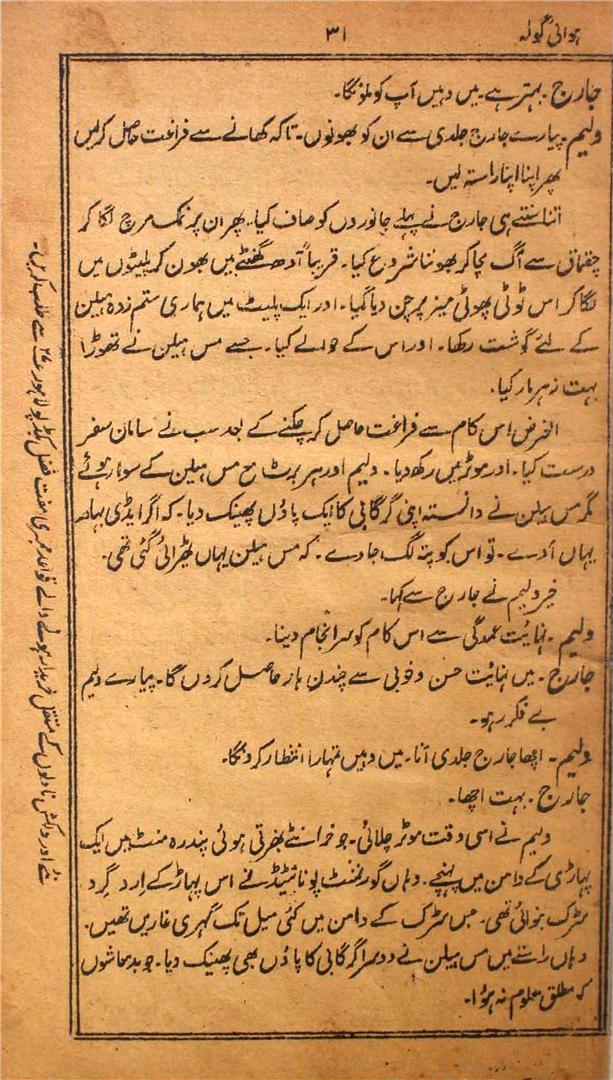 ہوائی گولہ
۳۱
جارج۔ بہتر ہے۔ میں وہیں آپ کو ملونگا۔
ولیم۔ پیارے جارج جلدی سے ان کو بھونوں۔ تاکہ کھانے سے فراغت حاصل کرلیں
پھر اپنا اپنا راستہ لیں۔
اتنا سنتے ہی جارج نے پہلے جانوروں کو صاف کیا۔ پھر ان پر نمک مرچ لگا کر
چقماق سے آگ بچا کر بھوننا شروع کیا۔ قریباً آدھ گھنٹے میں بھون کر پلیٹوں میں
لگا کر اس ٹوٹی پھوٹی میز پر چن دیا گیا۔ اور ایک پلیٹ میں ہماری ستم زدہ ہیلن
کے لئے گوشت رکھا۔ اور اس کے حوالے کیا۔ جسے مس ہیلن نے تھوڑا
بہت زہر مار کیا۔
الغرض اس کام سے فراغت حاصل کر چکنے کے بعد سب نے سامان سفر
درست کیا۔ اور موٹر میں رکھ دیا۔ ولیم اور ہر برٹ مع مس ہیلن کے سوار ہوئے
مگر مس ہیلن نے دانستہ اپنی گرگابی کا ایک پاؤں پھینک دیا۔ کہ اگر ایڈی بہادر
یہاں آوے۔ تو اس کو پتہ لگ جاوے۔ کہ مس ہیلن یہاں ٹھہرائی گئی تھی۔
خیر ولیم نے جارج سے کہا۔
ولیم۔ نہایئت عمدگی سے اس کام کو سرانجام دینا۔
جارج۔ میں نہایئت حسن و خوبی سے چندن ہار حاصل کروں گا۔ پیارے ولیم
بے فکر رہو۔
ولیم۔ اچھا جارج جلدی آنا۔ میں وہیں تمہارا انتظار کرونگا۔
جارج۔ بہت اچھا۔
ولیم نے اسی وقت موٹر چلائی۔ جو خراٹے بھرتی ہوئی پندرہ منٹ میں ایک
پہاڑی کے دامن میں پہنچے۔ وہاں گورنمنٹ یونائیٹڈ نے اس پہاڑ کے ارد گرد
سڑک بنوائی تھی۔ جس سڑک کے دامن میں کئی میل تک گہری غاریں تھیں۔
وہاں راستے میں مس ہیلن نے دوسرا گرگابی کا پاؤں بھی پھینک دیا۔ جو بدمعاشوں
کو مطلق معلوم نہ ہؤا۔
نئے اور دلکش ناولوں کے مستقل خریدار ہونے والے قواعد ممبری مفت فضل بکڈپو لاہور سے طلب کریں۔